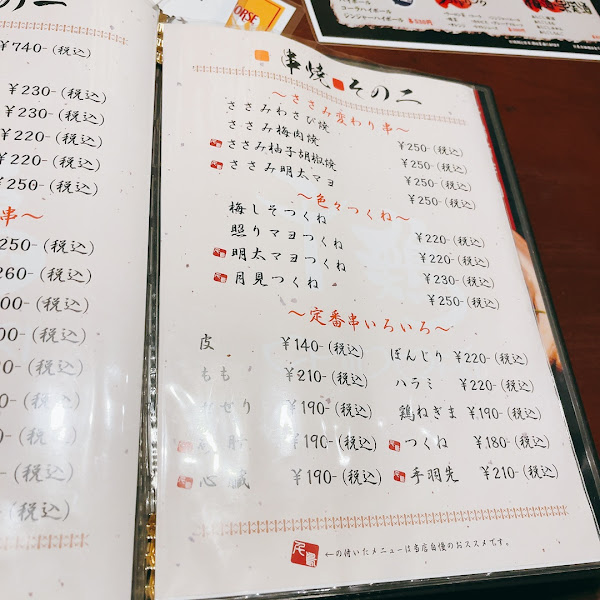 ¥740-(税込)
¥230-(税込)
¥230-(税込)
¥220-(税込)
¥220-(税込)
¥250-(税込)
串〜
250-(税込)
260-(税込)
00-(税込)
00-(税込)
0-(税込)
0-(税込)
0-(税込)
-(税込)
-(税込)
ORSE
コーラハイボール
ジンジャーハイボール
串焼 その二
〜ささみ変わり串〜
ささみわさび焼 ¥250-(税込)
ささみ梅肉焼 ¥250-(税込)
ささみ柚子胡椒焼 ¥250-(税込)
ささみ明太マヨ ¥250-(税込)
〜色々つくね〜
梅しそつくね ¥220-(税込)
照りマヨつくね ¥220-(税込)
明太マヨつくね ¥230-(税込)
月見つくね ¥250-(税込)
〜定番串いろいろ〜
皮 ¥140-(税込) ぼんじり ¥220-(税込)
もも ¥210-(税込) ハラミ ¥220-(税込)
せせり ¥190-(税込) 鶏ねぎま ¥190-(税込)
¥190-(税込) つくね ¥180-(税込)
心臓 ¥190-(税込) 手羽先 ¥210-(税込)
←の付いたメニューは当店自慢のおススメです。